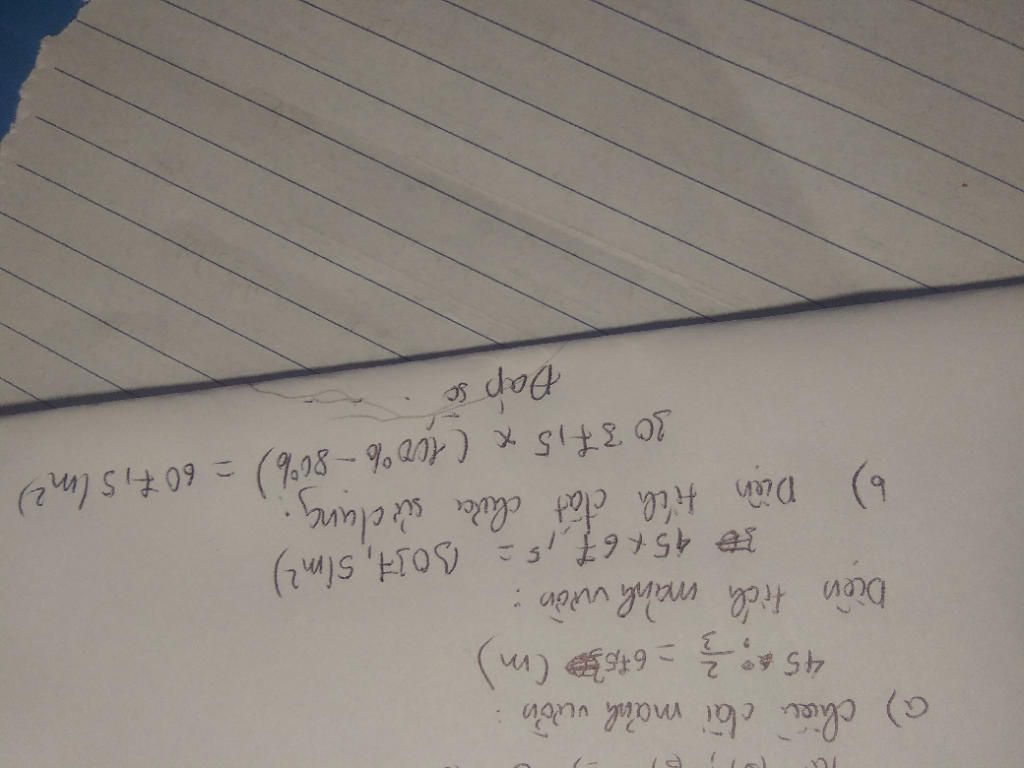 a) Chiều dài mảnh vườn :
45 : 2/3 = 67,5 (m)
Diện tích mảnh vườn :
45 x 67,5 = 3037,5 (m²)
b) Diện tích đất chưa sử dụng :
3037,5 x (100% - 80%) = 607,5 (m²)
Đáp số